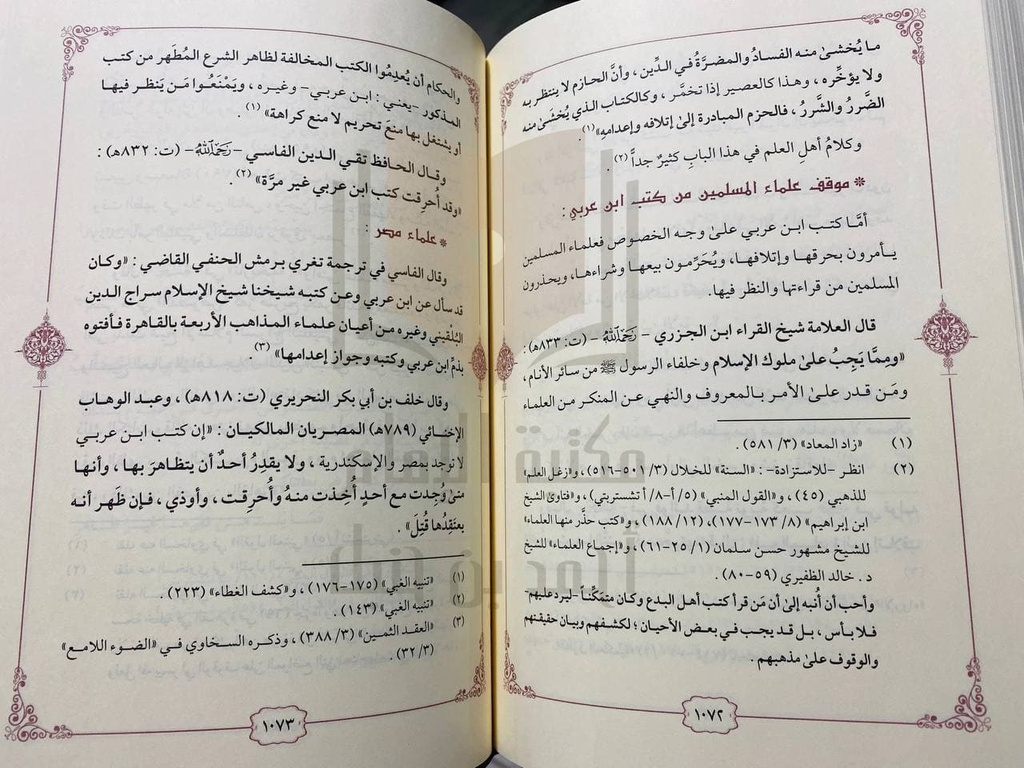 ما يُخشىٰ منه الفسادُ والمضرَّةُ في الدِّين، وأنَّ الحازم لا ينتظر به
ولا يؤخِّره، وهذا كالعصير إذا تخمَّر، وكالكتاب الذي يُخشَىٰ منه
الضَّررُ والشَّررُ، فالحزم المبادرة إلىٰ إتلافه وإعدامه»(١).
وكلامُ أهلِ العلم في هذا البابِ كثيرٌ جداً(٢).
* موقف علماء المسلمين من كتب ابن عربي:
أمَّا كتب ابن عربي علىٰ وجه الخصوص فعلماء المسلمين
يأمرون بحرقها وإتلافها، ويُحَرِّمون بيعها وشراءها، ويحذرون
المسلمين من قراءتها والنظر فيها.
قال العلامة شيخ القراء ابن الجزري -رَحِمَهُ اللهُ- (ت: ٨٣٣هـ):
«ومِمَّا يَجِبُ علىٰ ملوك الإسلام وخلفاء الرسول ﷺ من سائر الأنام،
ومَن قدر علىٰ الأمر بالمعروف والنهي عن المنكر من العلماء
(١) «زاد المعاد» (٣/ ٥٨١).
(٢) انظر -للاستزادة-: «السنة» للخلال (٣/ ٥٠١-٥١٦)، و«زغل العلم»
للذهبي (٤٥)، و«القول المنبي» (٥/ أ-٨/ أ تشستربتي)، و«فتاوىٰ الشيخ
ابن إبراهيم» (٨/ ١٧٣-١٧٧)، (١٢/ ١٨٨)، و«كتب حذَّر منها العلماء»
للشيخ مشهور حسن سلمان (١/ ٢٥-٦١)، و«إجماع العلماء» للشيخ
د. خالد الظفيري (٥٩-٨٠).
وأحب أن أُنبه إلىٰ أن مَن قرأ كتب أهل البدع وكان متمَكِّناً -ليرد عليهم-
فلا بأس، بل قد يجب في بعض الأحيان؛ لكشفهم وبيان حقيقتهم
والوقوف علىٰ مذهبهم.
١٠٧٢
والحكام أن يُعدِمُوا الكتب المخالفة لظاهر الشرع المُطَهر من كتب
المذكور -يعني: ابن عربي- وغيره، ويَمْنَعُوا مَن يَنظر فيها
أو يشتغل بها منعَ تحريم لا منع كراهة»(١).
وقال الحافظ تقي الدين الفاسي -رَحِمَهُ اللهُ- (ت: ٨٣٢هـ):
«وقد أُحرِقت كتب ابن عربي غير مرَّة»(٢).
* علماء مصر:
وقال الفاسي في ترجمة تغري برمش الحنفي القاضي: «وكان
قد سأل عن ابن عربي وعن كتبه شيخنا شيخ الإسلام سراج الدين
البُلْقيني وغيره من أعيان علماء المذاهب الأربعة بالقاهرة فأفتوه
بذمِّ ابن عربي وكتبه وجواز إعدامها»(٣).
وقال خلف بن أبي بكر النحريري (ت: ٨١٨هـ)، وعبد الوهاب
الإخنائي (٧٨٩هـ) المصريان المالكيان: «إن كتب ابن عربي
لا توجد بمصر والإسكندرية، ولا يقدِرُ أحدٌ أن يتظاهرَ بها، وأنها
متىٰ وُجدت مع أحدٍ أُخِذت منهُ وأُحرِقت، وأوذي، فإن ظَهر أنه
يعتَقِدُها قُتِلَ».
(١) «تنبيه الغبي» (١٧٥-١٧٦)، و«كشف الغطاء» (٢٢٣).
(٢) «تنبيه الغبي» (١٤٣).
(٣) «العقد الثمين» (٣/ ٣٨٨)، وذكره السخاوي في «الضوء اللامع»
(٣/ ٣٢).
١٠٧٣